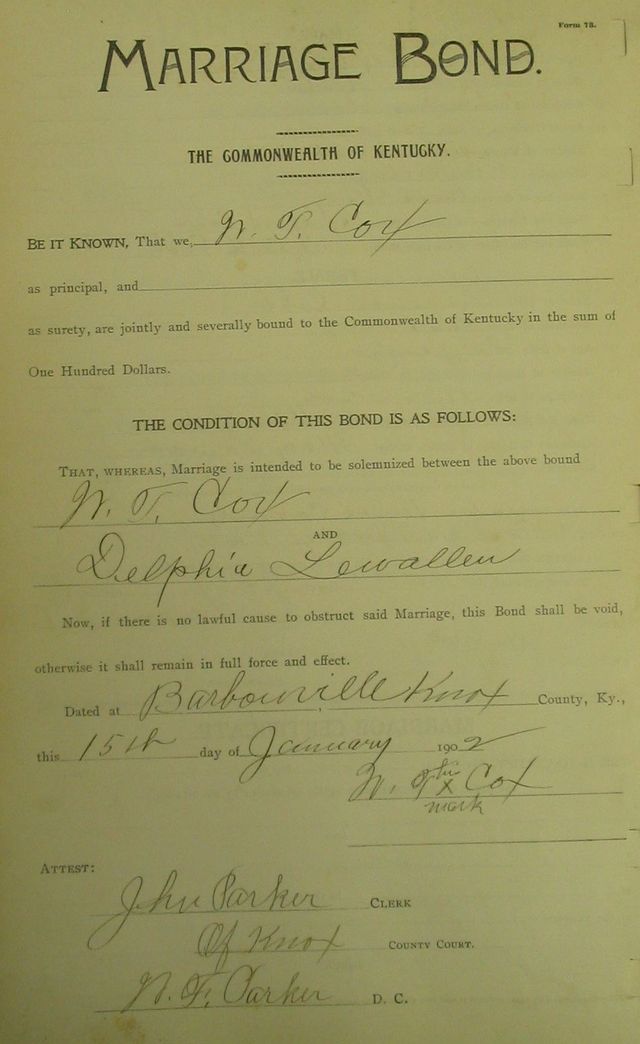 Form 73.
MARRIAGE BOND.
THE COMMONWEALTH OF KENTUCKY.
BE IT KNOWN, That we, W. T. Cox
as principal, and
as surety, are jointly and severally bound to the Commonwealth of Kentucky in the sum of
One Hundred Dollars.
THE CONDITION OF THIS BOND IS AS FOLLOWS:
THAT, WHEREAS, Marriage is intended to be solemnized between the above bound
W. T. Cox
AND
Delphia Lewallen
Now, if there is no lawful cause to obstruct said Marriage, this Bond shall be void,
otherwise it shall remain in full force and effect.
Dated at Barbourville Knox County, Ky.,
this 15th day of January 1902
his
W. T. x Cox
mark
ATTEST:
Jhn Parker CLERK
Of Knox COUNTY COURT.
W. F. Parker D. C.